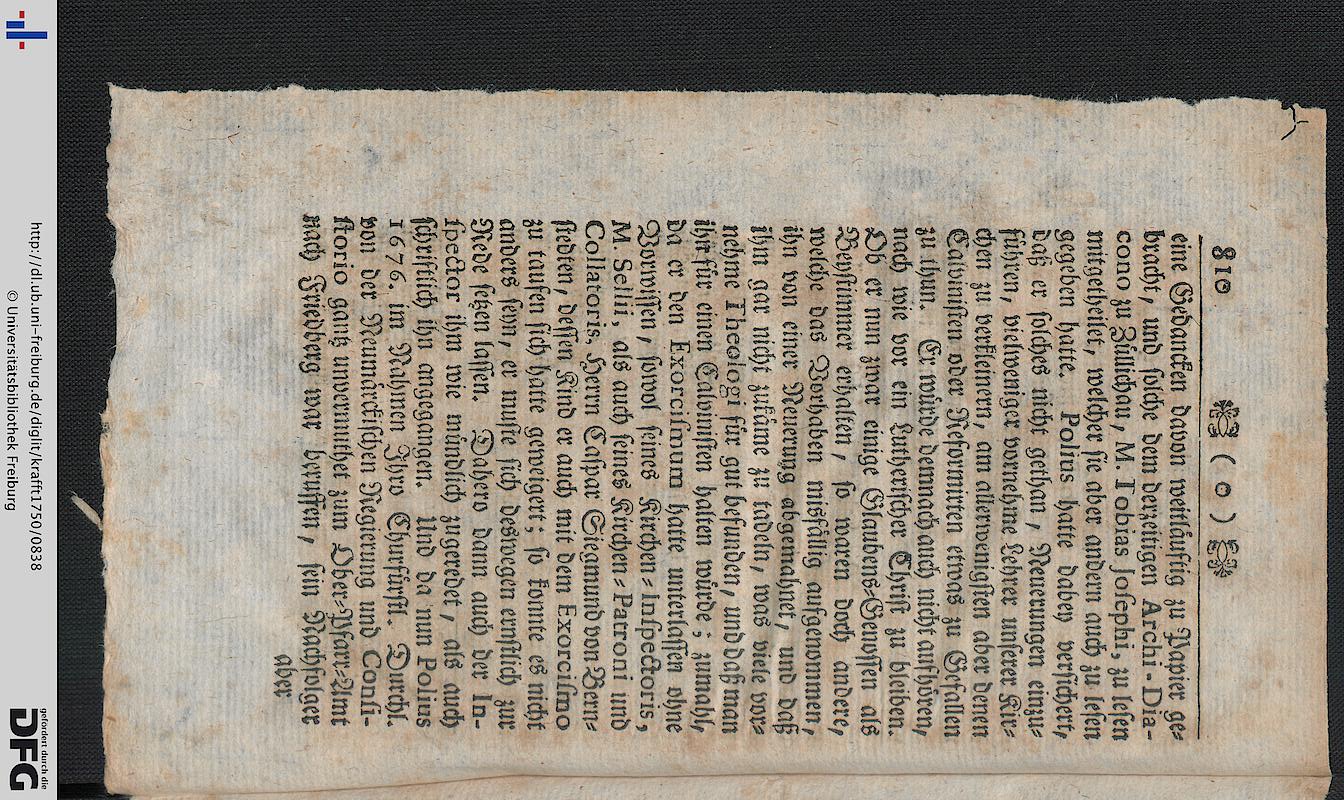 810 ( o )
eine Gedancken davon weitläuftig zu Papier ge-
bracht, und solche dem derzeitigen Archi-Dia-
cono zu Züllichau, M. Tobias Josephi, zu lesen
mitgetheilet, welcher sie aber andern auch zu lesen
gegeben hatte. Polius hatte dabey versichert,
daß er solches nicht gethan, Neuerungen einzu-
führen, vielweniger vornehme Lehrer unserer Kir-
chen zu verkleinern, am allerwenigsten aber denen
Calvinisten oder Reformirten etwas zu Gefallen
zu thun. Er würde demnach auch nicht aufhören,
nach wie vor ein Lutherischer Christ zu bleiben.
Ob er nun zwar einige Glaubens-Genossen als
Beystimmer erhalten, so waren doch andere,
welche das Vorhaben misfällig aufgenommen,
ihn von einer Neuerung abgemahnet, und daß
ihm gar nicht zukäme zu tadeln, was viele vor-
nehme Theologi für gut befunden, und daß man
ihn für einen Calvinisten halten würde; zumahl,
da er den Exorcismum hatte unterlassen ohne
Vorwissen, sowol seines Kirchen-Inspectoris,
M Selli, als auch seines Kirchen-Patroni und
Collatoris, Herrn Caspar Siegmund von Bern-
stedten, dessen Kind er auch mit dem Exorcismo
zu taufen sich hatte geweigert; so konnte es nicht
anders seyn, er muste sich deswegen ernstlich zur
Rede setzen lassen. Dahero dann auch der In-
spector ihm wie mündlich zugeredet, als auch
schriftlich ihn angegangen. Und da nun Polius
1676. im Nahmen Ihro Churfürstl. Durchl.
von der Neumärckischen Regierung und Consi-
storio gantz unvermuthet zum Ober-Pfarr-Amt
nach Friedberg war beruffen, sein Nachfolger
aber
http://dl.ub.uni-freiburg.de/diglit/krafft1750/0838
© Universitätsbibliothek Freiburg
gefördert durch die
DFG